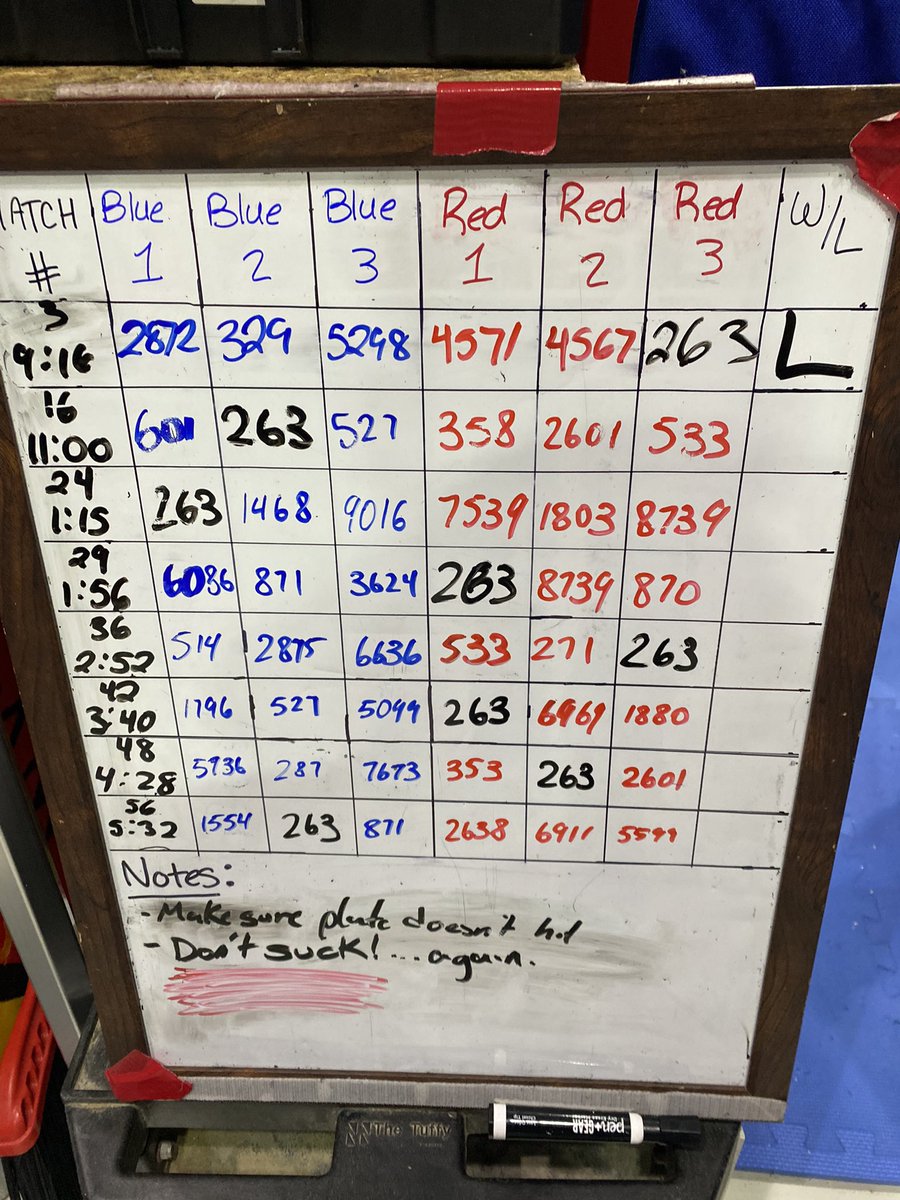 MATCH # Blue 1 Blue 2 Blue 3 Red 1 Red 2 Red 3 W/L
3 9:16 2872 329 5298 4571 4567 263 L
16 11:00 601 263 527 358 2601 533
24 1:15 263 1468 9016 7539 1803 8739
29 1:56 6086 871 3624 263 8739 870
36 2:52 514 2875 6636 533 271 263
42 3:40 1796 527 5099 263 6961 1880
48 4:28 5736 287 7673 353 263 2601
56 5:32 1554 263 871 2638 6911 5599
Notes:
- Make sure plate doesn't hit
- Don't suck!... again.
The Tuffy
pen+GEAR